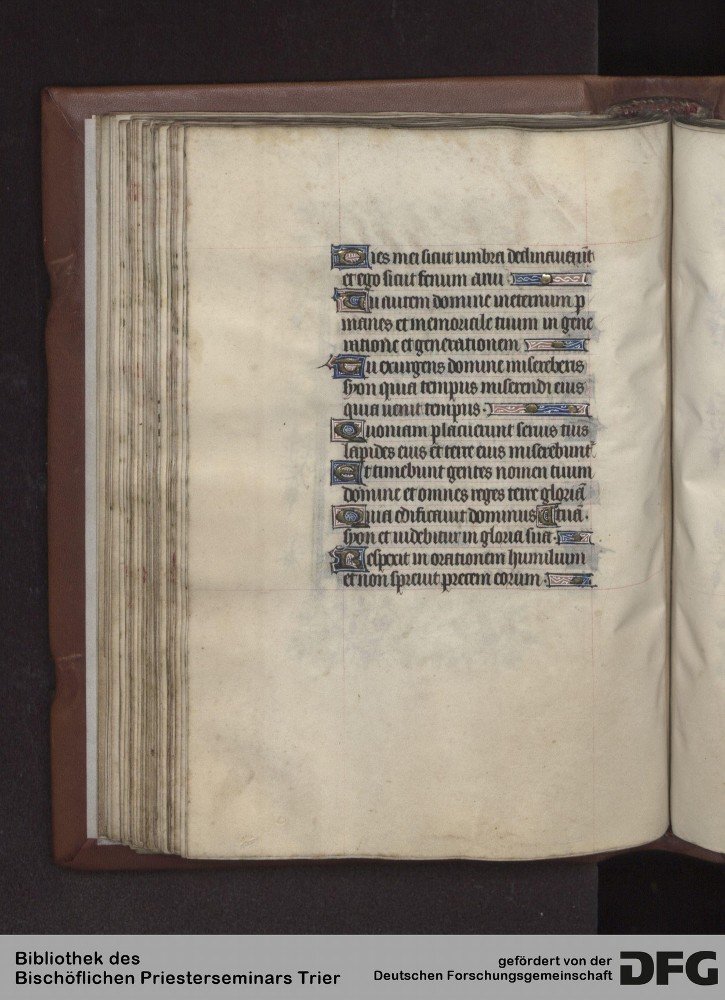 Dies mei sicut umbra declinauerūt
et ego sicut fenum arui
Tu autem domine ineternum p
manes et memoriale tuum in gene
ratione et generationem
Tu exurgens domine misereberis
syon quia tempus miserendi eius
quia uenit tempus
Quoniam placuerunt seruis tuis
lapides eius et terre eius miserebunt
Et timebunt gentes nomen tuum
domine et omnes reges terre gloriā
Quia edificauit dominus tuā.
syon et uidebitur in gloria sua
Respexit in orationem humilium
et non spreuit precem eorum
Bibliothek des
Bischöflichen Priesterseminars Trier
gefördert von der
Deutschen Forschungsgemeinschaft
DFG